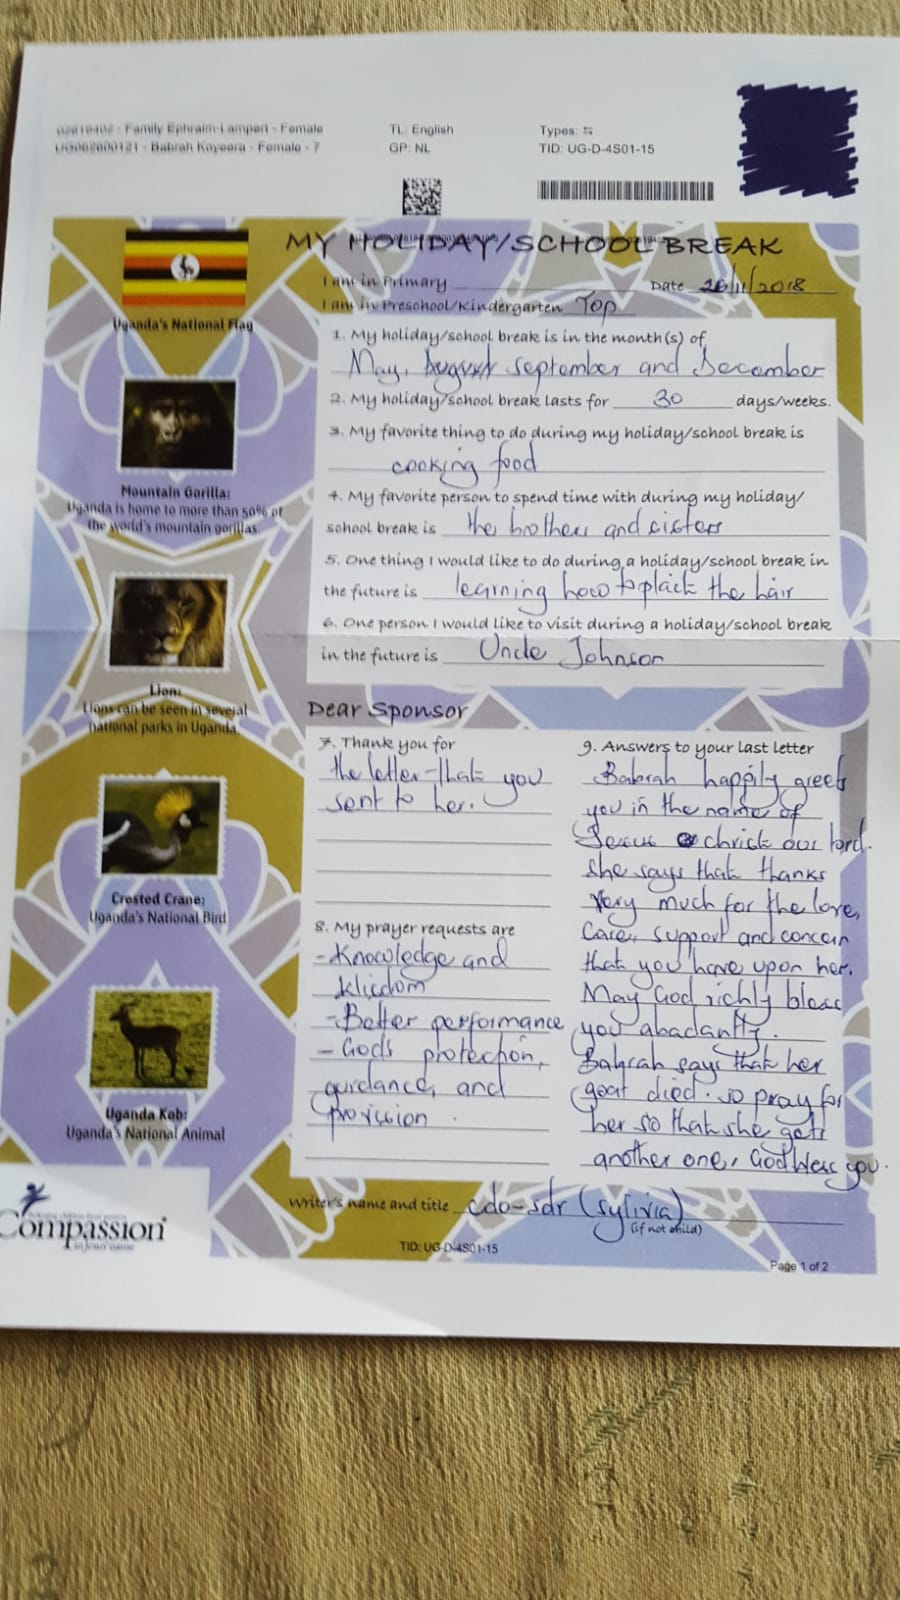 02819402 - Family Ephraim-Lampert - Female
UG002600121 - Babrah Koyeera - Female - 7
TL: English
GP: NL
Types:
TID: UG-D-4S01-15
MY HOLIDAY/SCHOOL BREAK
I am in Primary
Date 26/11/2018
I am in Preschool/Kindergarten Top
Uganda's National Flag
1. My holiday/school break is in the month(s) of
May, September and December
2. My holiday/school break lasts for 30 days/weeks.
3. My favorite thing to do during my holiday/school break is
cooking food
4. My favorite person to spend time with during my holiday/
school break is the brothers and sisters
5. One thing I would like to do during a holiday/school break in
the future is learning how to plait the hair
6. One person I would like to visit during a holiday/school break
in the future is Uncle Johnson
Mountain Gorilla:
Uganda is home to more than 50% of
the world's mountain gorillas.
Lion:
Lions can be seen in several
national parks in Uganda.
Crested Crane:
Uganda's National Bird
Uganda Kob:
Uganda's National Animal
Dear Sponsor
7. Thank you for
the letter that you
sent to her.
8. My prayer requests are
- Knowledge and
- Better performance
- God's protection,
guidance, and
provission.
9. Answers to your last letter
Babrah happily greets
you in the name of
Jesus christ our lord.
she says that thanks
very much for the love,
Care, support and concern
that you have upon her.
May God richly bless
you abadantly.
Babrah says that her
goat died. so pray for
her so that she gets
another one, God bless you.
Writer's name and title cdo-sdr (sylivia)
(if not child)
Compassion
in Jesus' name
TID: UG-D-4S01-15
Page 1 of 2